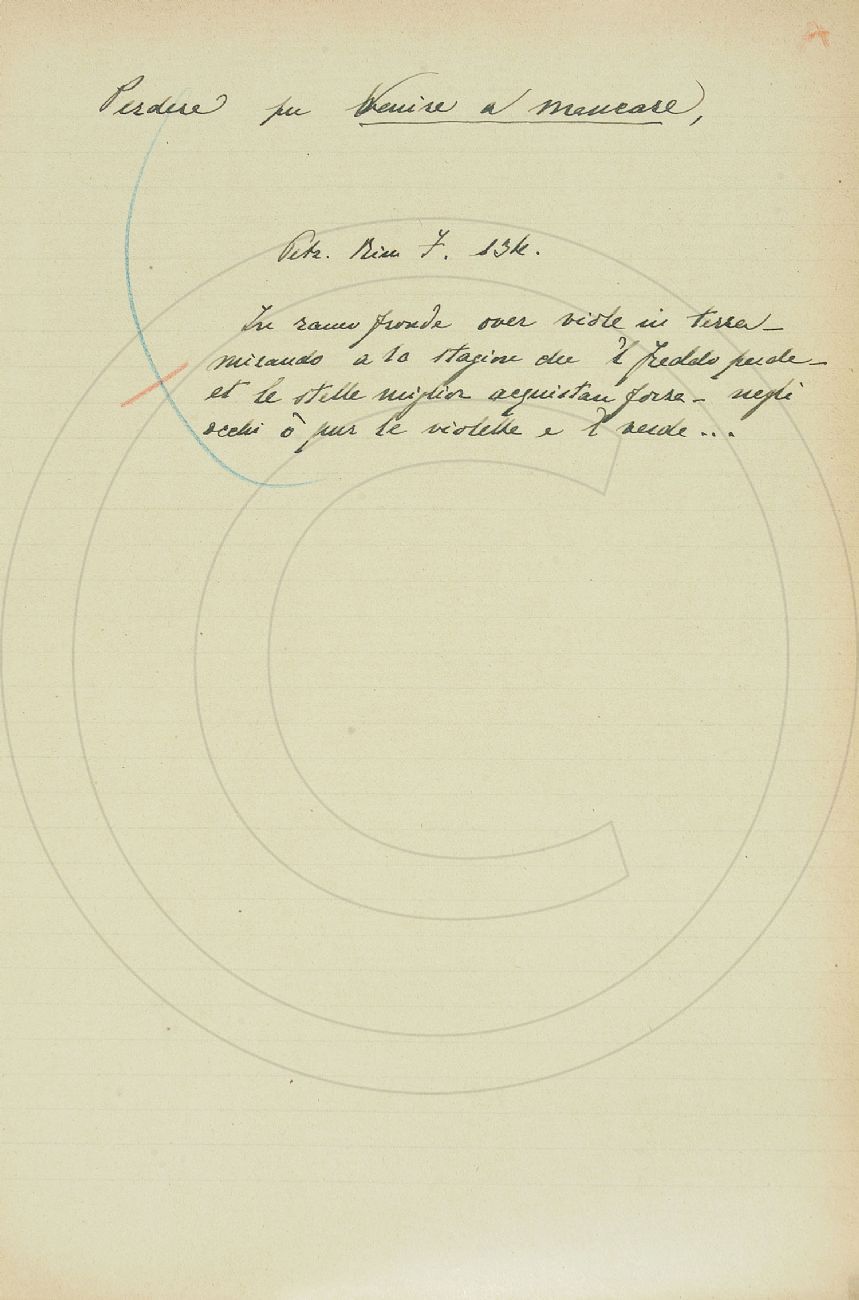 Perdere per Venire a mancare,
Petr. Rim I. 134.
In ramo fronde over viole in terra –
mirando a la stagion che 'l freddo perde –
et le stelle miglior acquistan forza – negli
occhi ò pur le violette e 'l verde ...